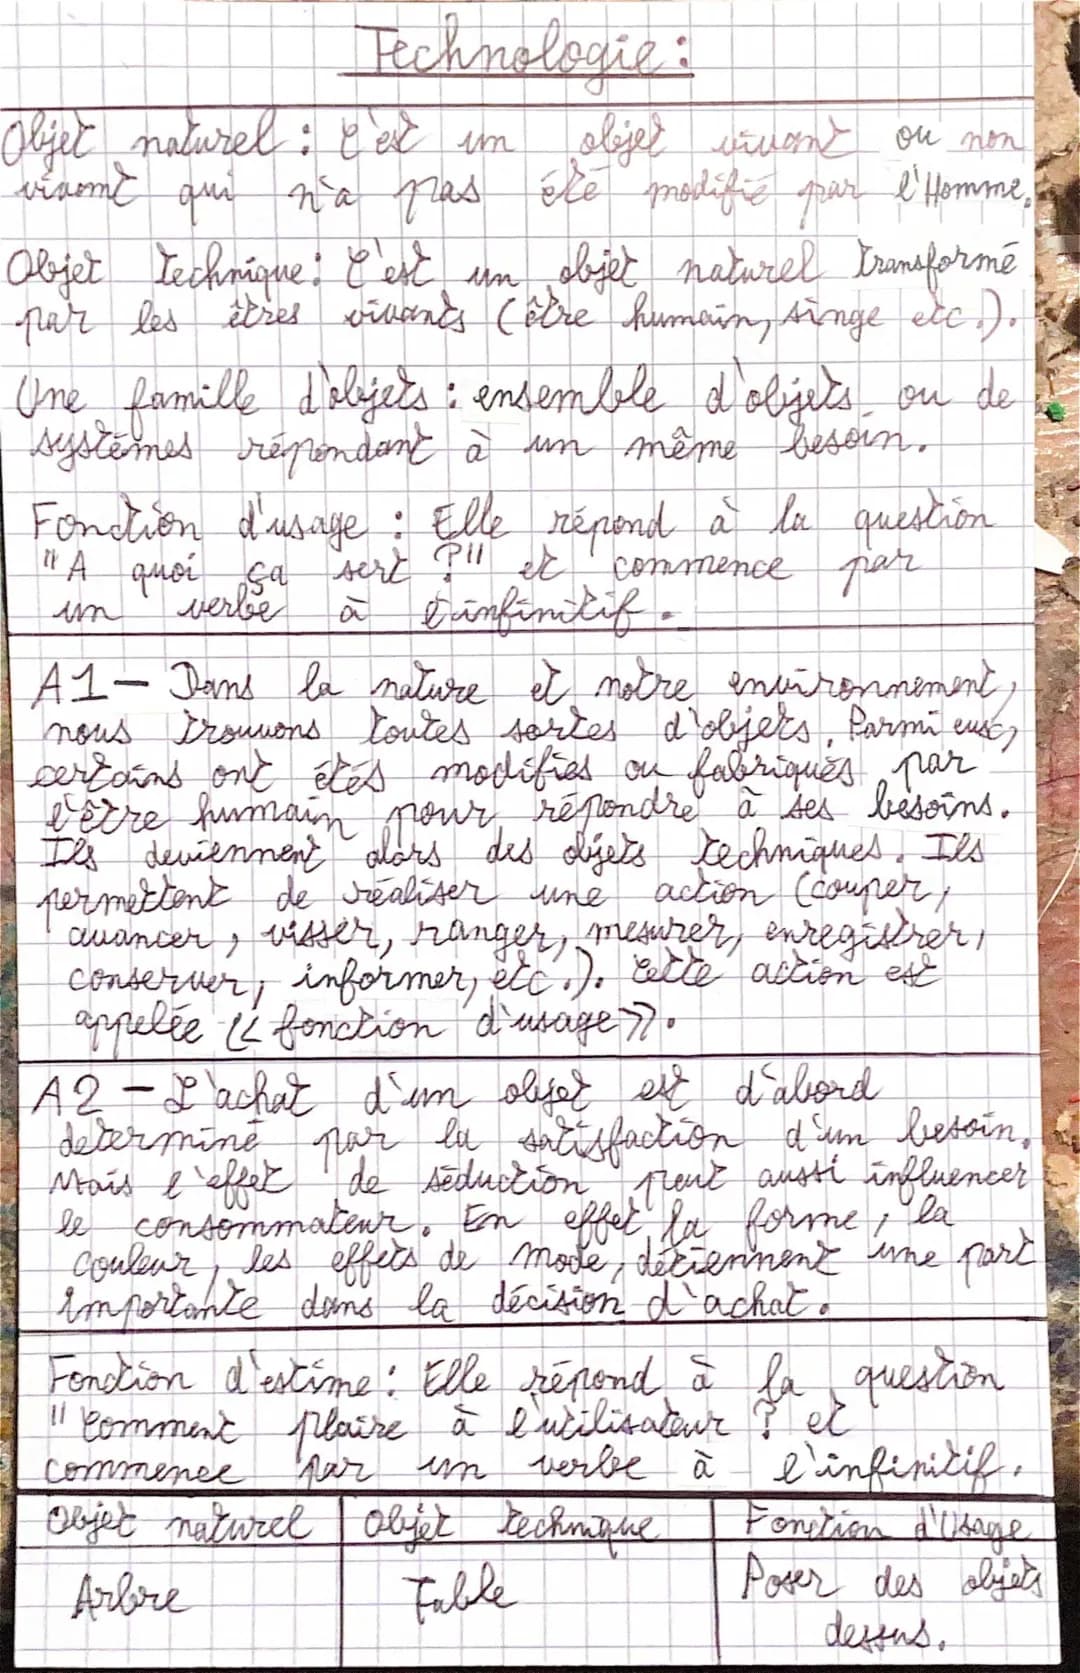 Technologie :
Objet naturel : C'est un objet vivant ou non
vivant qui n'a pas été modifié par l'Homme.
Objet technique : C'est un objet naturel transformé
par les êtres vivants (être humain, singe etc.).
Une famille d'objets : ensemble d'objets ou de
systèmes répondant à un même besoin.
Fonction d'usage : Elle répond à la question
"A quoi ça sert ?" et commence par
un verbe à l'infinitif.
A1 - Dans la nature et notre environnement,
nous trouvons toutes sortes d'objets. Parmi eux,
certains ont étés modifiés ou fabriqués par
l'être humain pour répondre à ses besoins.
Ils deviennent alors des objets techniques. Ils
permettent de réaliser une action (couper,
avancer, visser, ranger, mesurer, enregistrer,
conserver, informer, etc.). Cette action est
appelée << fonction d'usage >>.
A2 - L'achat d'un objet est d'abord
determiné par la satisfaction d'un besoin.
Mais l'effet de séduction peut aussi influencer
le consommateur. En effet la forme, la
couleur, les effets de mode, détiennent une part
importante dans la décision d'achat.
Fonction d'estime : Elle répond à la question
"Comment plaire à l'utilisateur ? et
commence par un verbe à l'infinitif.
Objet naturel Objet technique Fonction d'Usage
Arbre Table Poser des objets
dessus.